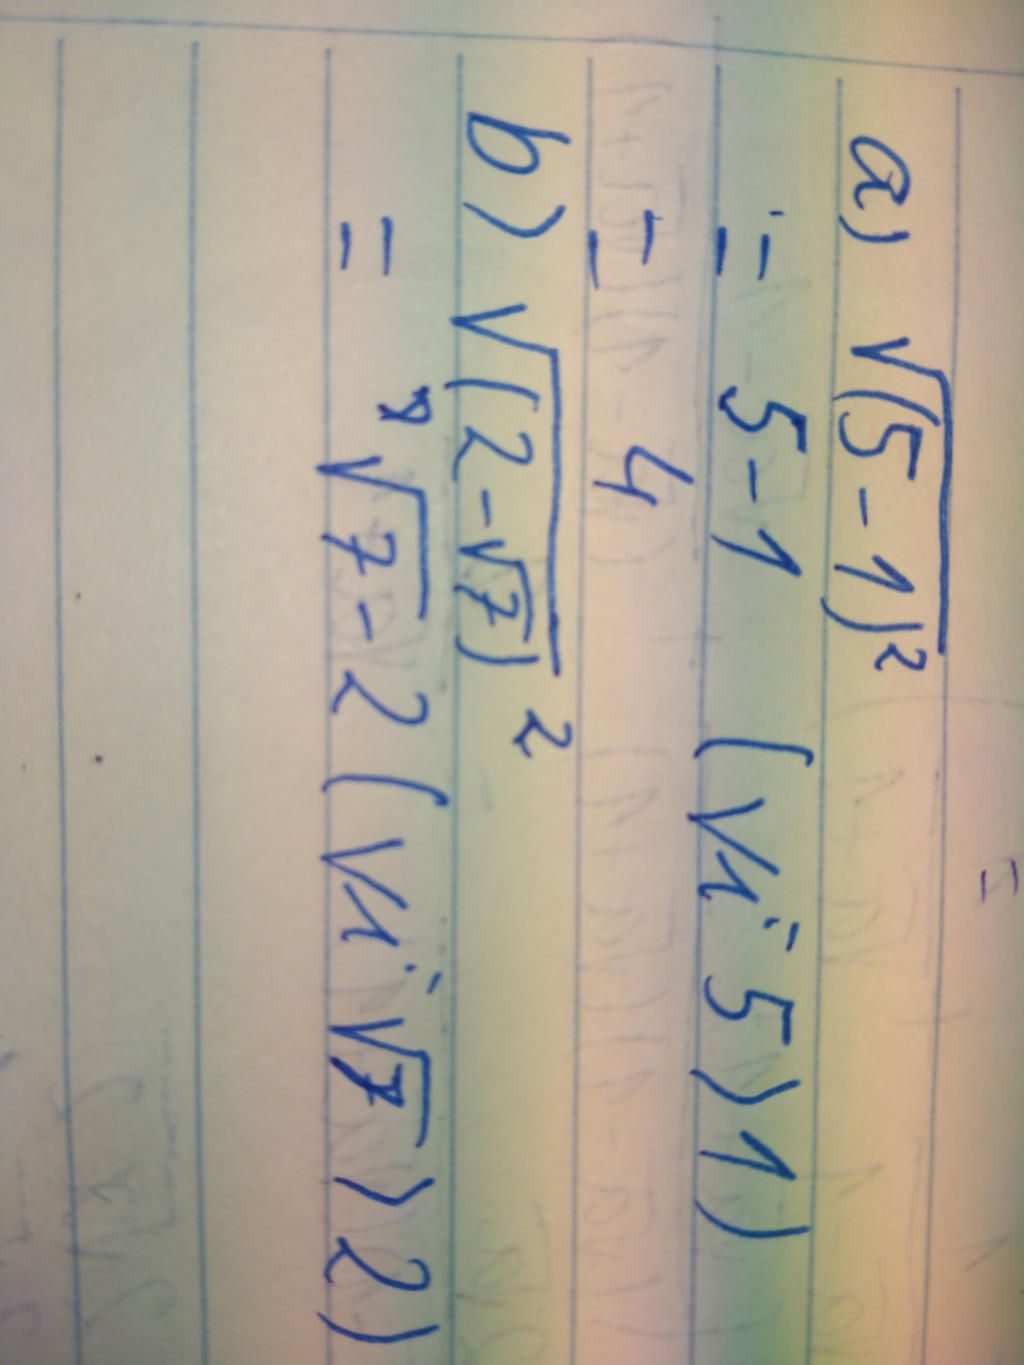 a) √(5-1)²
= 5-1 (Vì 5>1)
= 4
b) √(2-√7)²
= √7-2 (Vì √7>2)